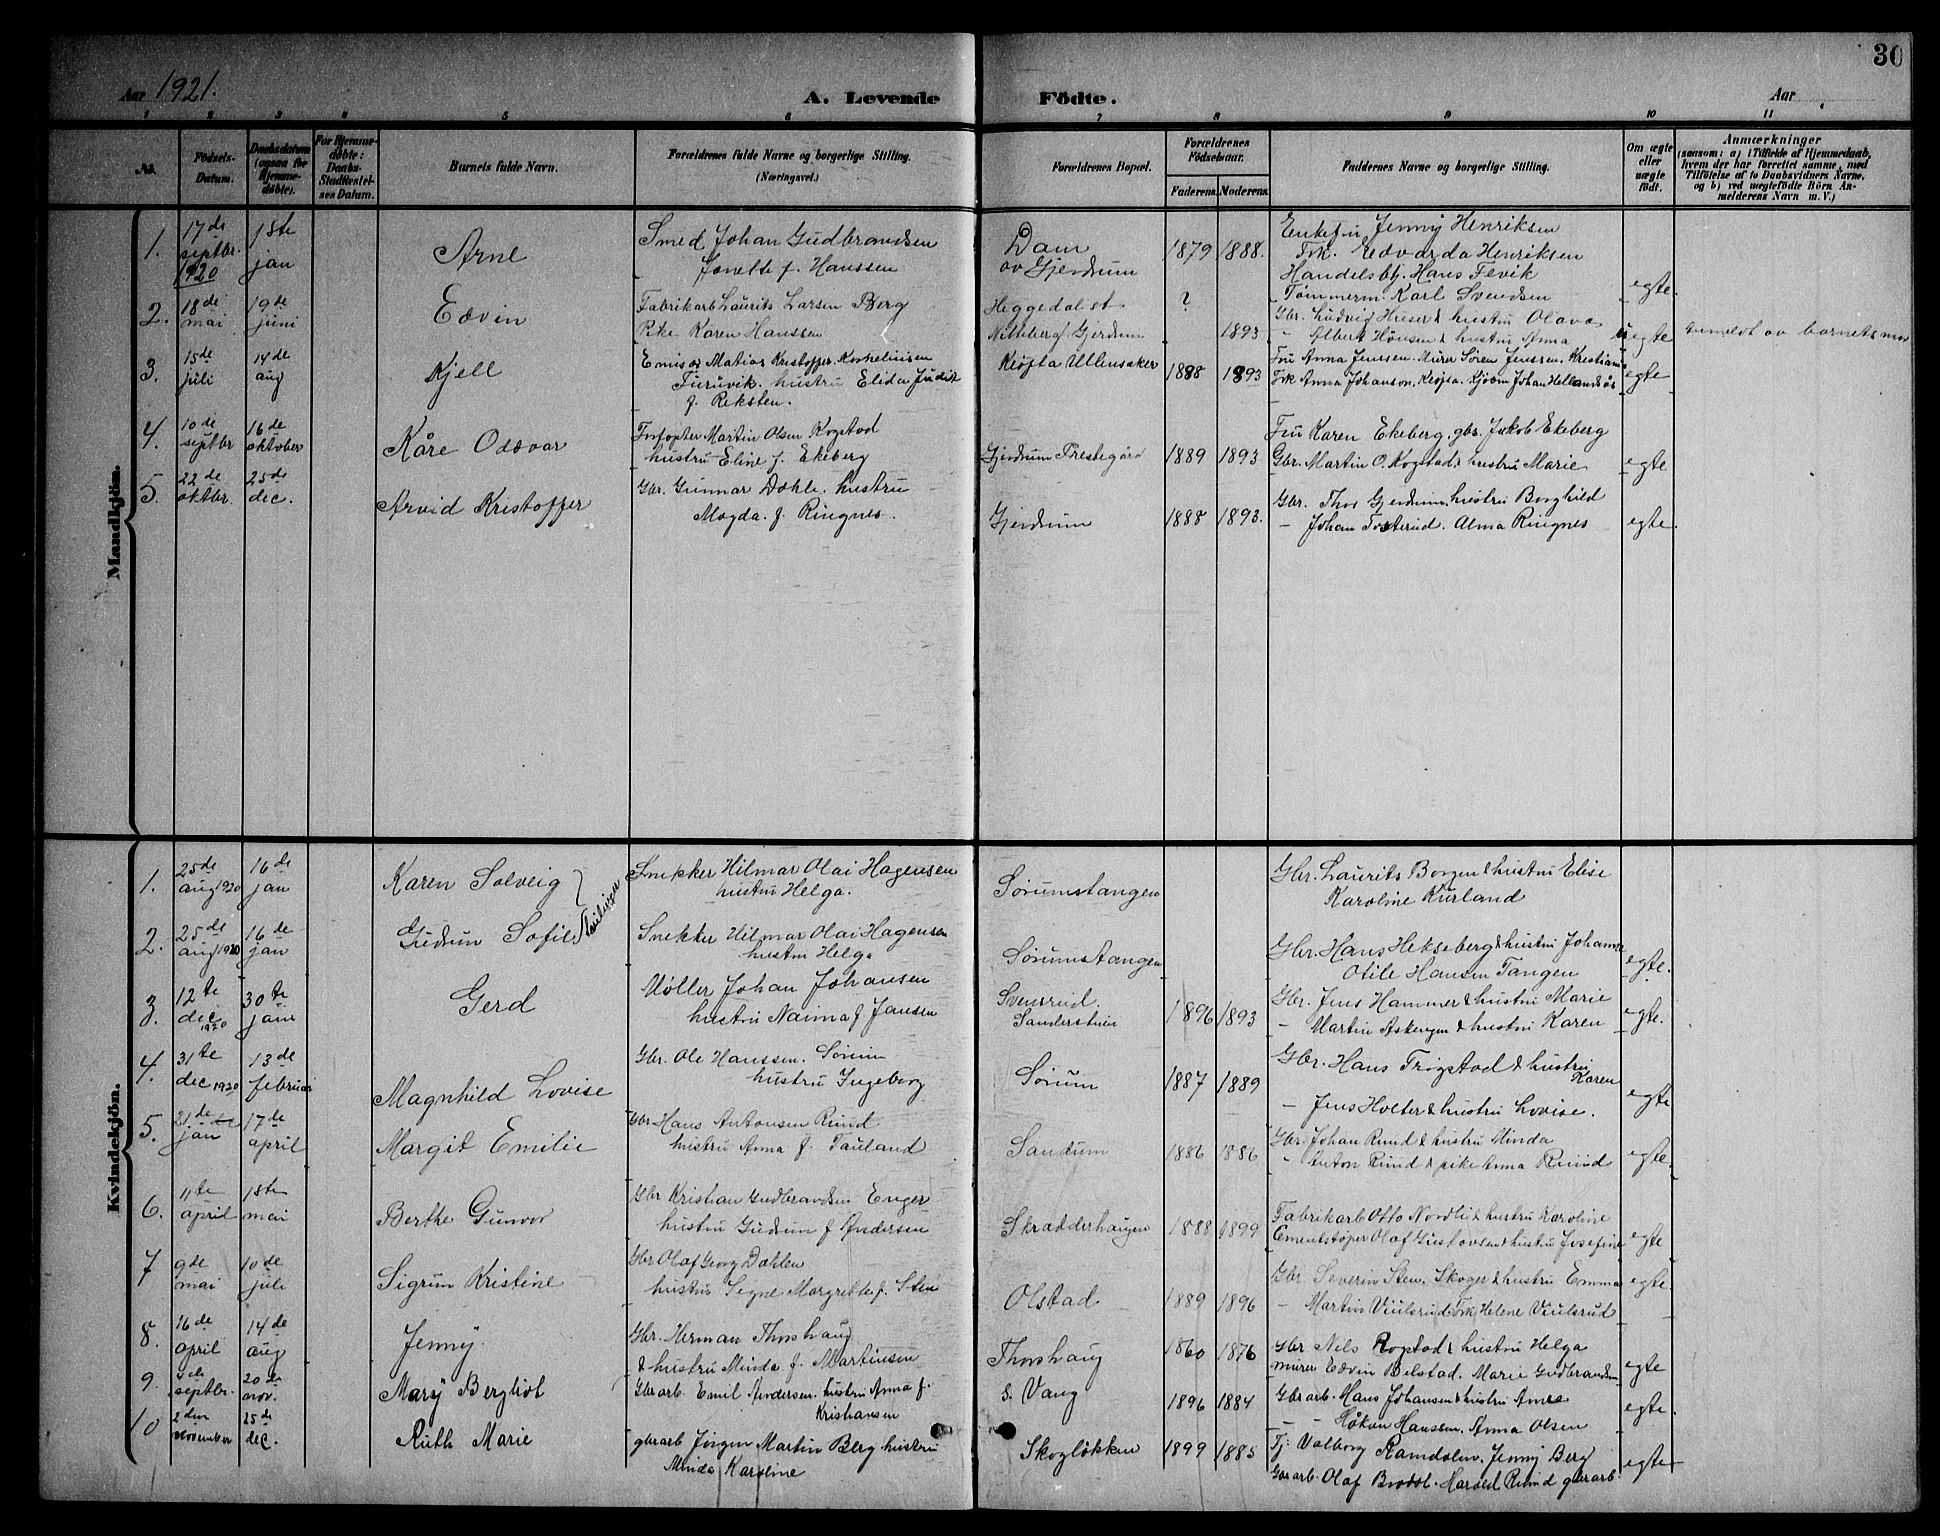 30
Aar 1921.
A. Levende Födte.
Aar
1 2 3 4 5 6 7 8 9 10 11
No.
Födsels-Datum.
Daabsdatum (ogsaa for Hjemme-døbte).
For Hjemme-døbte: Daabs-Stadfæstel-ses Datum.
Barnets fulde Navn.
Forældrenes fulde Navne og borgerlige Stilling.
(Næringsvei.)
Forældrenes Bopæl.
Forældrenes Födselsaar.
Faderens. Moderens.
Faddernes Navne og borgerlige Stilling.
Om ægte eller uægte født.
Anmærkninger
(saasom: a) i Tilfælde af Hjemmedaab, hvem der har forrettet samme, med Tilføielse af to Daabsvidners Navne, og b) ved uægtefødte Børn An-melderens Navn m. V.)
Mandkjön.
1. 17de septbr. 1920 18te jan Arne
Smed Johan Gudbrandsen
Jonette f. Hanssen
Dam av Gjerdrum 1879 1888.
Enkefru Jenny Henriksen
Frk. Edvarda Henriksen
Handelsbtj. Hans Fevik
Tømmerm. Karl Svendsen
egte.
2. 18de mai 19de juni Edvin
Fabrikarb Laurits Larsen Berg
Pike Karen Hanssen
Heggedal st ?
Gjerdrum 1893
Gbr. Ludvig Huser & hustru Olava
- Albert Hønsen & hustru Anna
uegte Anmeldt av barnets mor
3. 15de juli 14de aug Kjell
Emisær Matias Kristoffer Kornheliusen
Furuvik. hustru Elida Judit
f. Reksten.
Kløfta Ullensaker 1888 1893
Fru Anna Jenssen. Murer Søren Jenssen. Kristiania
Frk Anna Johanson. Kløfta.
egte
4. 10de septbr 16de oktober Kåre Oddvar
Martin Olsen Kogstad
hustru Eline f. Ekeberg
Gjerdrum Prestegård 1889 1893
Fru Karen Ekeberg. gbr. Jakob Ekeberg
Gbr. Martin O. Kogstad & hustru Marie
egte
5. 22de oktbr. 25de dec. Arvid Kristoffer
Gbr. Gunnar Dahle. hustru
Magda. f. Ringnes.
Gjerdrum 1888 1893.
Gbr. Thor Gjerdrum, hustru Borghild
- Johan Fosterud. Alma Ringnes
egte
Kvindekjön.
1. 25de aug 1920 16de jan Karen Solveig
Snekker Hilmar Olai Hagensen
hustru Helga.
Sørumstangen
Gbr. Laurits Borgen & hustru Elise
Karoline Kurland
Tvilinger
2. 25de aug 1920 16de jan Gudrun Sofie
Snekker Hilmar Olai Hagensen
hustru Helga
Sørumstangen
Gbr. Hans Hekseberg & hustru Johanne
Otilie Hansen Tangen
egte.
3. 12te dec 1920 30te jan Gerd
Møller Johan Johansen
hustru Naima f Jansen
Svensrud. 1896 1893
Gbr. Jens Hammer & hustru Marie
- Martin Askengen & hustru Karen
egte.
4. 31te dec 1920 13de februar Magnhild Lovise
Gbr. Ole Hanssen. Sørum
hustru Ingeborg
Sørum 1887 1889
Gbr. Hans Trøgstad & hustru Karen
- Jens Holter & hustru Lovise.
egte
5. 21de jan 17de april Margit Emilie
Gbr Hans Antonsen Ruud
hustru Anna f. Tauland
Sandum 1886 1886
Gbr. Johan Ruud & hustru Minda
- Anton Ruud & pike Anna Ruud
egte.
6. 11te april 18te mai Berthe Gunvor
Gbr Kristian Gudbrandsen Enger
hustru Gudrun f Andersen
Skradderhaugen 1888 1899
Fabrikarb Otto Nordli & hustru Karoline
Cementstøper Olaf Gustavsen & hustru Josefine
egte
7 9de mai 10de juli Sigrun Kristine
Gbr Olaf Georg Dahlen
hustru Signe Margrethe f. Sten
Olstad 1889 1896
Gbr Severin Sten. Skoger & hustru Emma
- Martin Viulsrud. Frk Helene Viulsrud
egte
8. 16de april 14de aug Jenny.
Gbr. Herman Thorshaug
& hustru Minda f. Martinsen
Thorshaug 1860 1876
Gbr Nils Rogstad & hustru Helga
murer Edvin Belstad. Marie Gudbrandsen
egte
9. septbr. 20de nov. Mary Bergliot
Gbrarb. Emil Andersen. hustru Anna f.
Kristiansen
S. Vang 1896 1884
Gbrarb. Hans Johansen & hustru
- - Håkon Hanssen. Anna Olsen
egte.
10 2den november 25de dec. Ruth Marie
gbrarb Jørgen Martin Berg hustru
Minda Karoline
Skogløkken 1899 1885
Tj. Valborg Ramdalen. Jenny Berg
Gbrarb. Olaf Brodal. Harald Ruud gbrarb.
egte